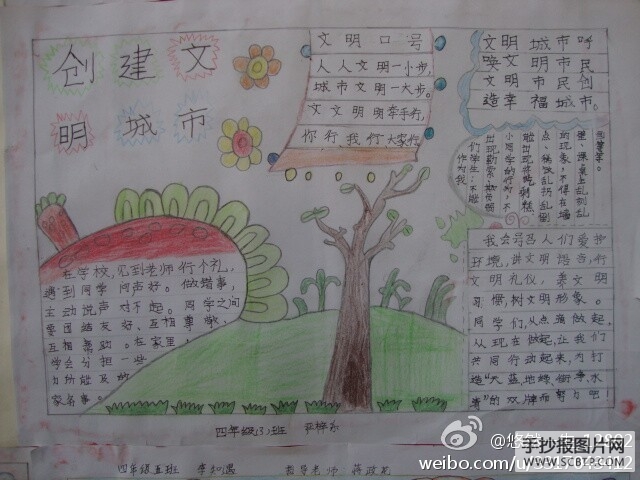 创建文
明 城市
文明口号
人人文明一小步,
城市文明一大步。
文文明明牵手行,
你行我行大家行
文明城市呼
唤文明市民
文明市民创
造幸福城市。
作为我
们学生:不能
出现勒索、欺负弱
小同学的行为,不
能出现将吃剩糕
点、稀饭乱扔乱倒
的现象,不得在墙
壁、课桌上乱刻乱
在学校,见到老师行个礼,
遇到同学问声好。做错事,
主动说声对不起。同学之间
要团结友好、互相尊敬、
互相帮助。在家里,
学会分担一些
力所能及的
家务事。
我会号召人们爱护
环境,讲文明语言,行
文明礼仪,养文明
习惯,树文明形象。
同学们,从点滴做起,
从现在做起,让我们
共同行动起来,为打
造“天蓝,地绿,街净,水
清”的双牌而努力吧!
四年级(3)班
四年级五班 李知遇 指导老师
weibo.com/u
手抄报图片网
WWW.SCBTP.COM